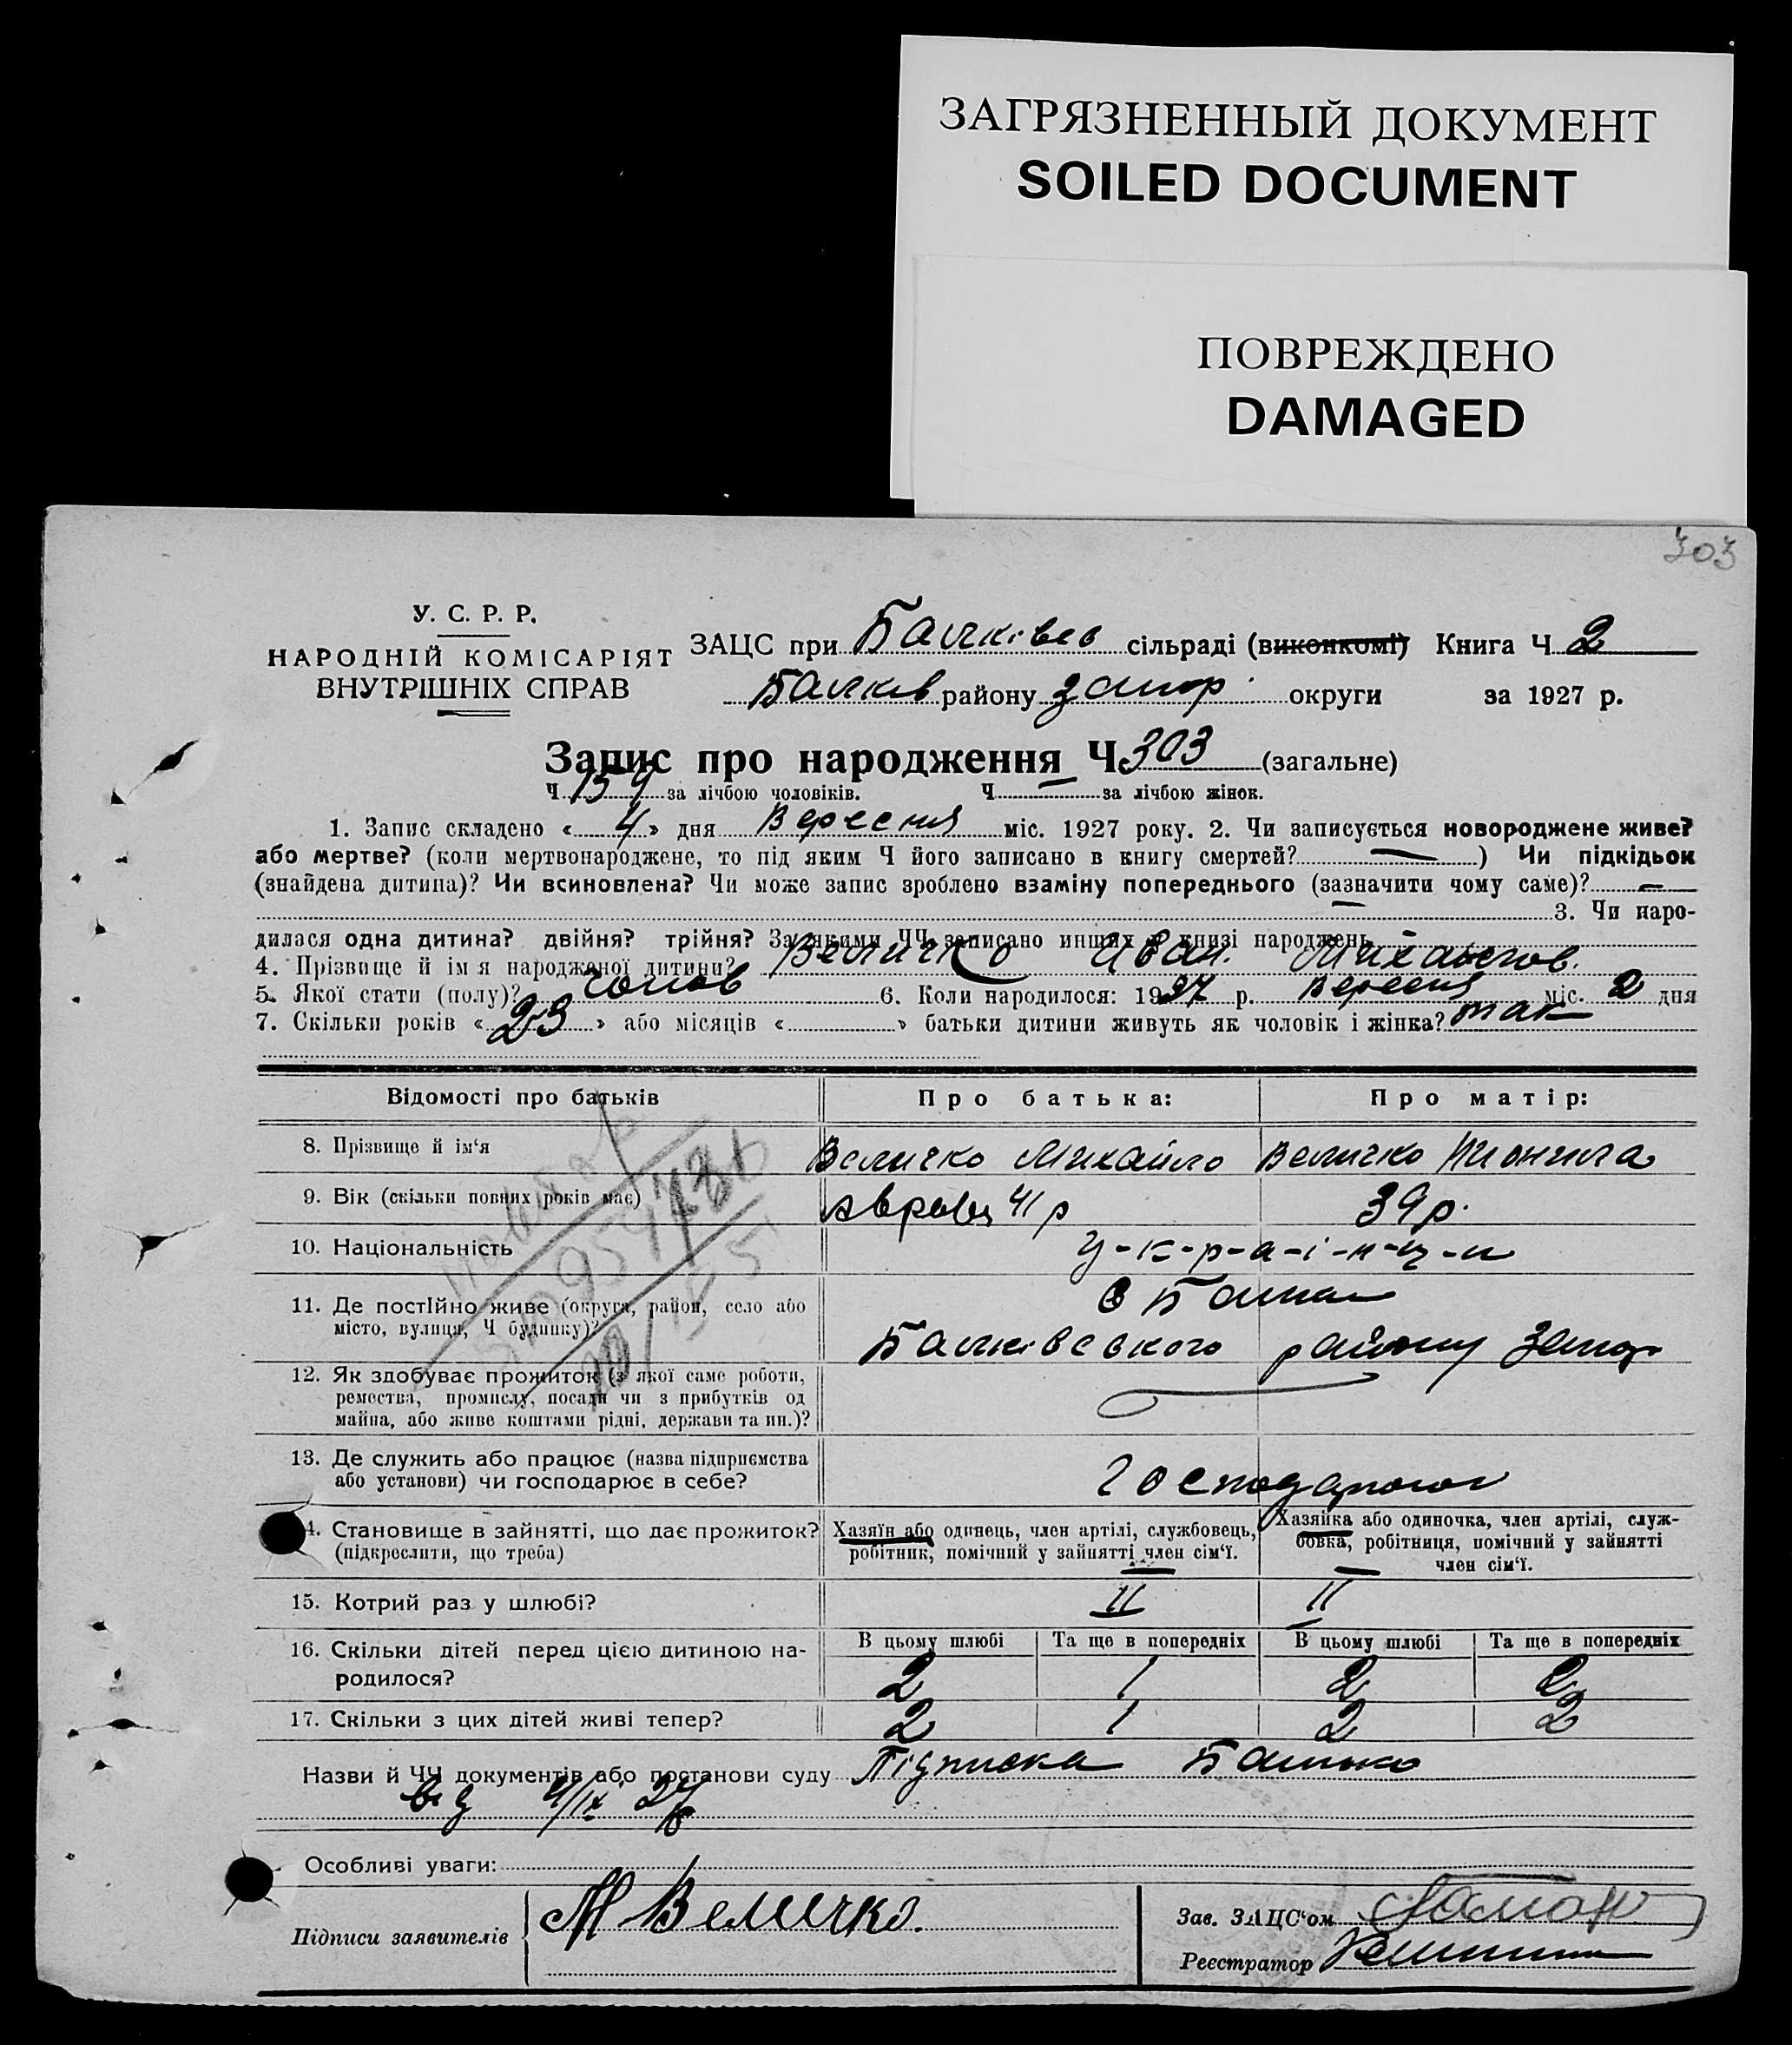 ЗАГРЯЗНЕННЫЙ ДОКУМЕНТ
SOILED DOCUMENT
ПОВРЕЖДЕНО
DAMAGED
303
У. С. Р. Р.
НАРОДНІЙ КОМІСАРІЯТ
ВНУТРІШНІХ СПРАВ
ЗАЦС при Балківс сільраді (виконкомі) Книга Ч 2
Балків району Запор. округи за 1927 р.
Запис про народження Ч. 303 (загальне)
Ч 154 за лічбою чоловіків. Ч — за лічбою жінок.
1. Запис складено « 4 » дня Вересня міс. 1927 року. 2. Чи записується новороджене живе?
або мертве? (коли мертвонароджене, то під яким Ч його записано в книгу смертей? — ) Чи підкідьок
(знайдена дитина)? Чи всиновлена? Чи може запис зроблено взаміну попереднього (зазначити чому саме)? —
3. Чи наро-
дилася одна дитина? двійня? трійня? За якими ЧЧ записано инших в книзі народжень
4. Прізвище й ім я народженої дитини? Величко Іван. Михайлов.
5. Якої стати (полу)? чолов 6. Коли народилося: 1927 р. Вересня міс. 2 дня
7. Скільки років « » або місяців « » батьки дитини живуть як чоловік і жінка? так
Відомості про батьків Про батька: Про матір:
8. Прізвище й ім‘я Величко Михайло Величко
9. Вік (скільки повних років має) 41 р 39 р.
10. Національність у-к-р-а-ї-н-ц-и
11. Де постійно живе (округа, район, село або
місто, вулиця, Ч будинку)? Балківського району Запор
12. Як здобуває прожиток (з якої саме роботи,
ремества, промислу, посади чи з прибутків од
майна, або живе коштами рідні, держави та ин.)?
13. Де служить або працює (назва підприємства
або установи) чи господарює в себе?
14. Становище в зайнятті, що дає прожиток?
(підкреслити, що треба)
Хазяїн або одинець, член артілі, службовець,
робітник, помічний у зайнятті член сім‘ї.
Хазяйка або одиночка, член артілі, служ-
бовка, робітниця, помічний у зайнятті
член сім‘ї.
15. Котрий раз у шлюбі? II II
16. Скільки дітей перед цією дитиною на-
родилося?
В цьому шлюбі Та ще в попередніх В цьому шлюбі Та ще в попередніх
2 1 2 2
17. Скільки з цих дітей живі тепер? 2 1 2 2
Назви й ЧЧ документів або постанови суду Підписка Батька
від 4/IX 27
Особливі уваги:
Підписи заявителів М Величко.
Зав. ЗАЦС‘ом
Реєстратор